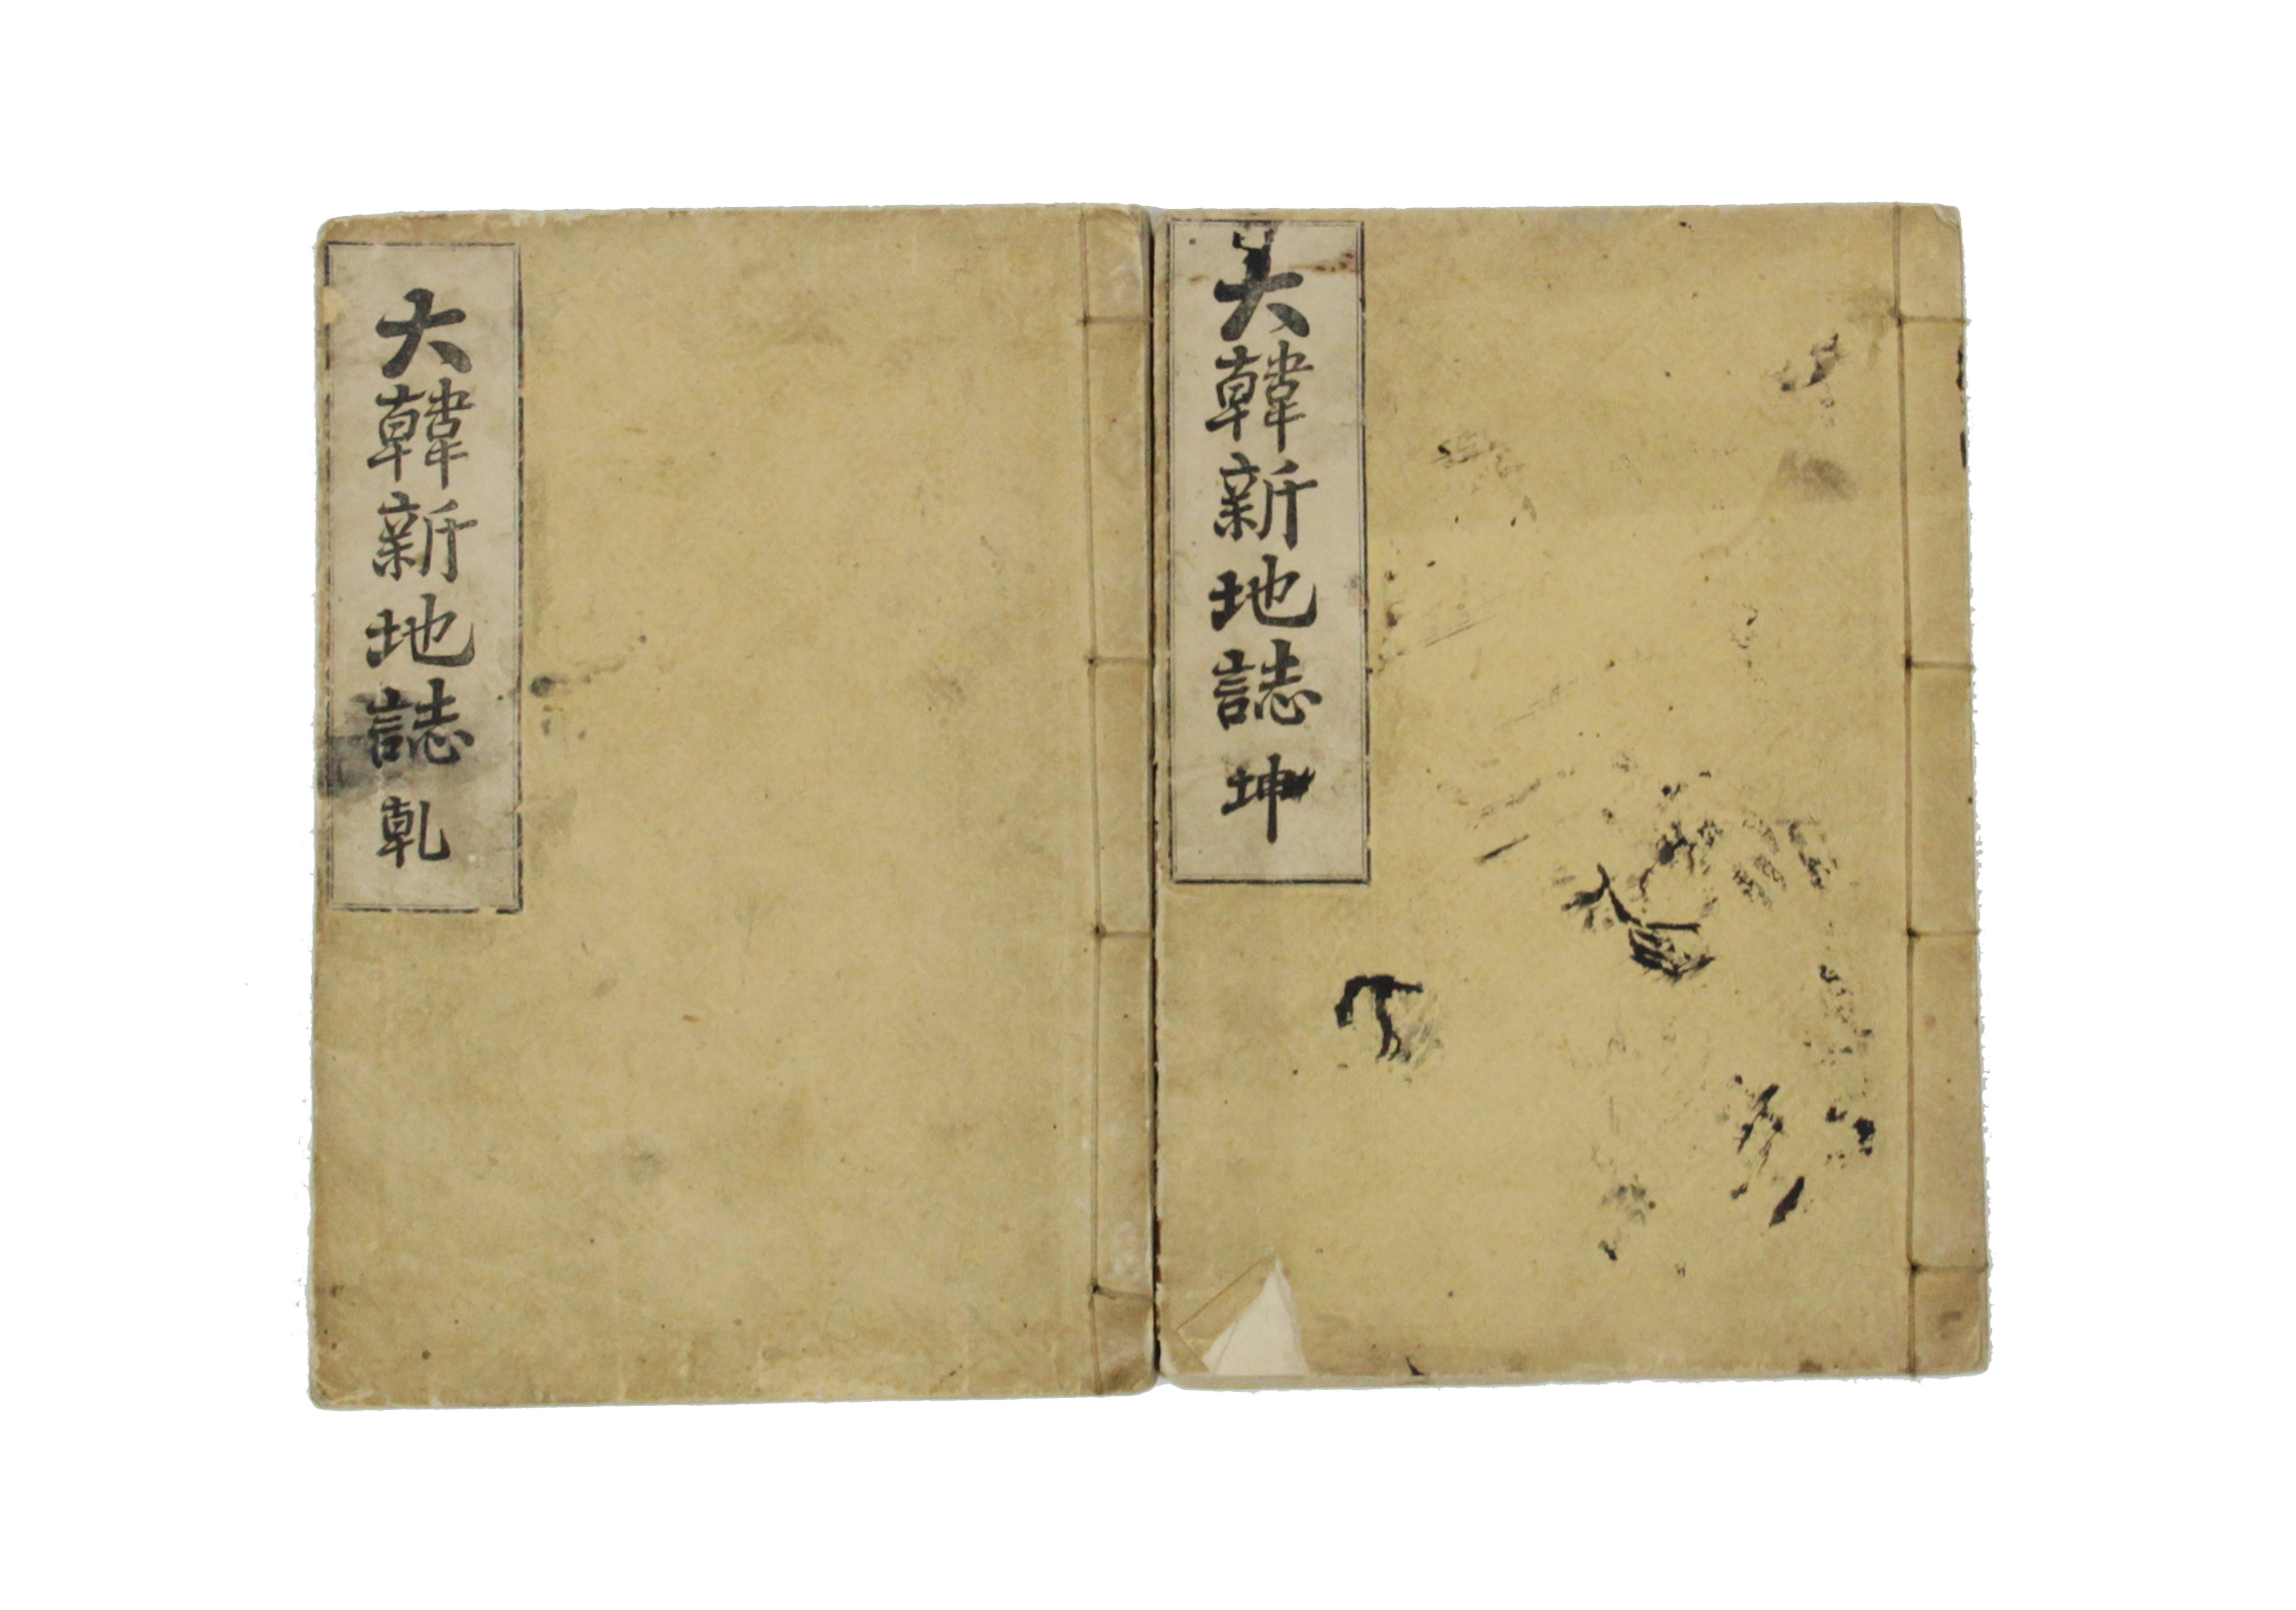 大韓新地誌 乹
大韓新地誌 坤